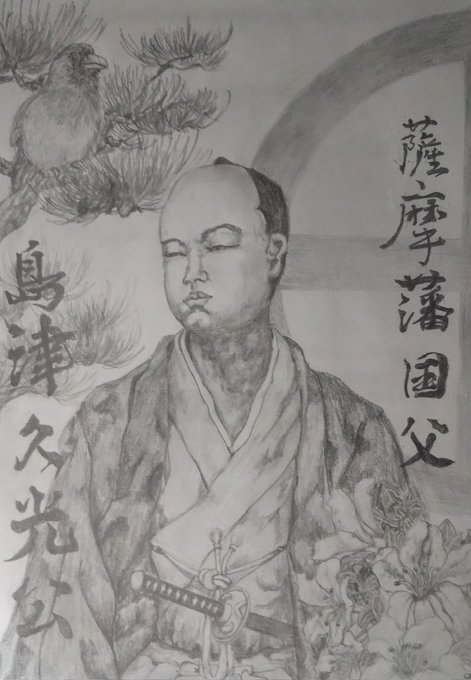 薩摩藩国父
島津久光公